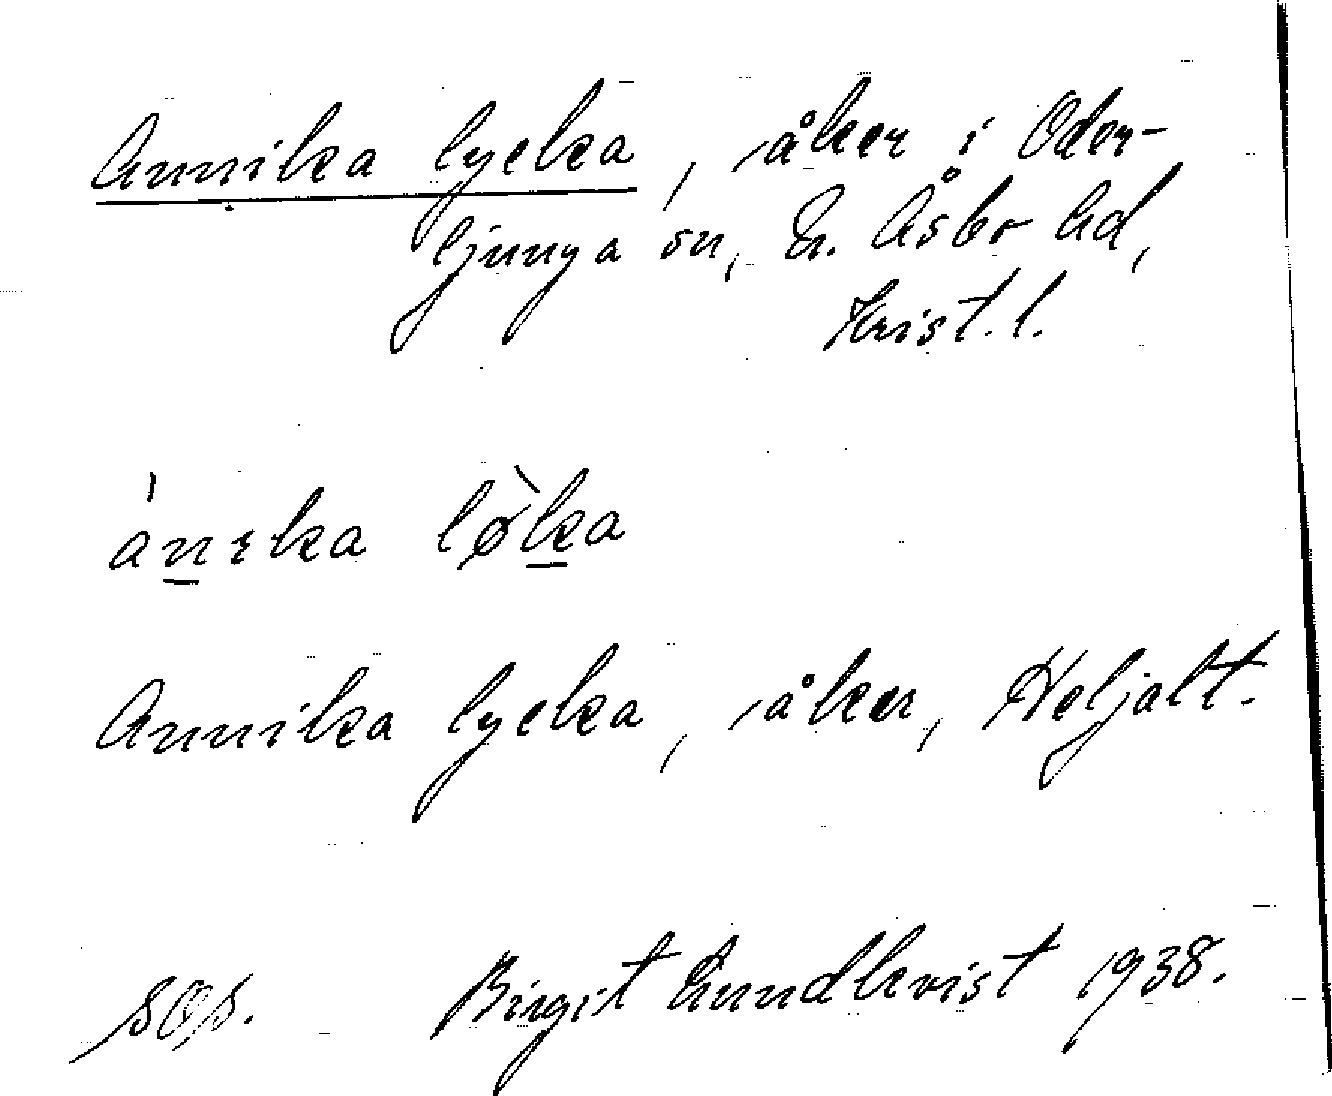 Annika lycka, åker i Oder-
ljunga sn, N. Åsbo hd,
Krist. l.
ánıka lø̀ka
Annika lycka, åker, Heljalt.
Birgit Lundkvist 1938.